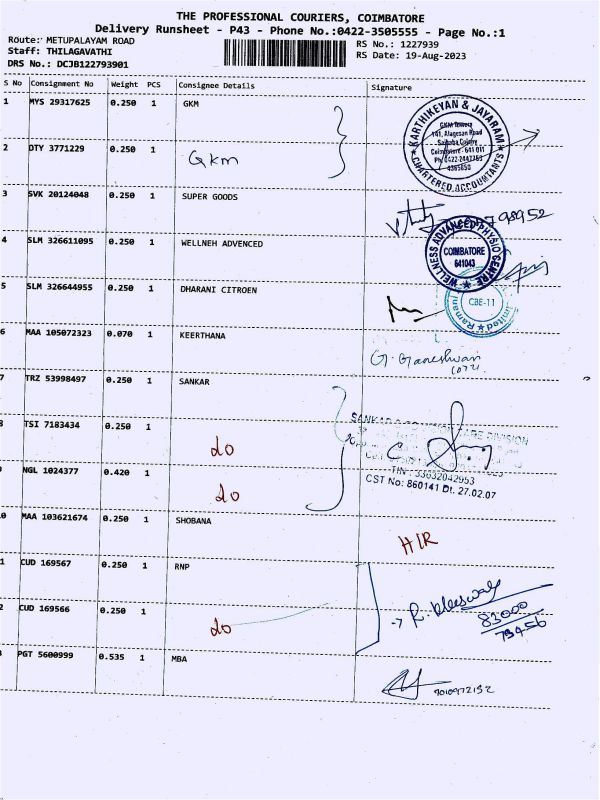 THE PROFESSIONAL COURIERS, COIMBATORE
Delivery Runsheet - P43 - Phone No.:0422-3505555 - Page No.:1
Route: METUPALAYAM ROAD
Staff: THILAGAVATHI
DRS No.: DCJB122793901
RS No.: 1227939
RS Date: 19-Aug-2023
S No Consignment No Weight PCS Consignee Details Signature
1 MYS 29317625 0.250 1 GKM
KARTHIKEYAN & JAYARAM
CHARTERED ACCOUNTANTS
GKM Towers
141, Alagesan Road
Saibaba Colony
Coimbatore - 641 011
2 DTY 3771229 0.250 1 GKM
3 SVK 20124048 0.250 1 SUPER GOODS
4 SLM 326611095 0.250 1 WELLNEH ADVENCED
WELLNESS ADVANCED PHYSIO CENTRE
COIMBATORE
641043
5 SLM 326644955 0.250 1 DHARANI CITROEN
CBE-11
6 MAA 105072323 0.070 1 KEERTHANA
G. Ganeshwari
7 TRZ 53998497 0.250 1 SANKAR
8 TSI 7183434 0.250 1 do
TIN : 33632042953
CST No: 860141 Dt. 27.02.07
9 NGL 1024377 0.420 1 do
0 MAA 103621674 0.250 1 SHOBANA
H/R
1 CUD 169567 0.250 1 RNP
2 CUD 169566 0.250 1 do
83000
79456
PGT 5600999 0.535 1 MBA
9010972152